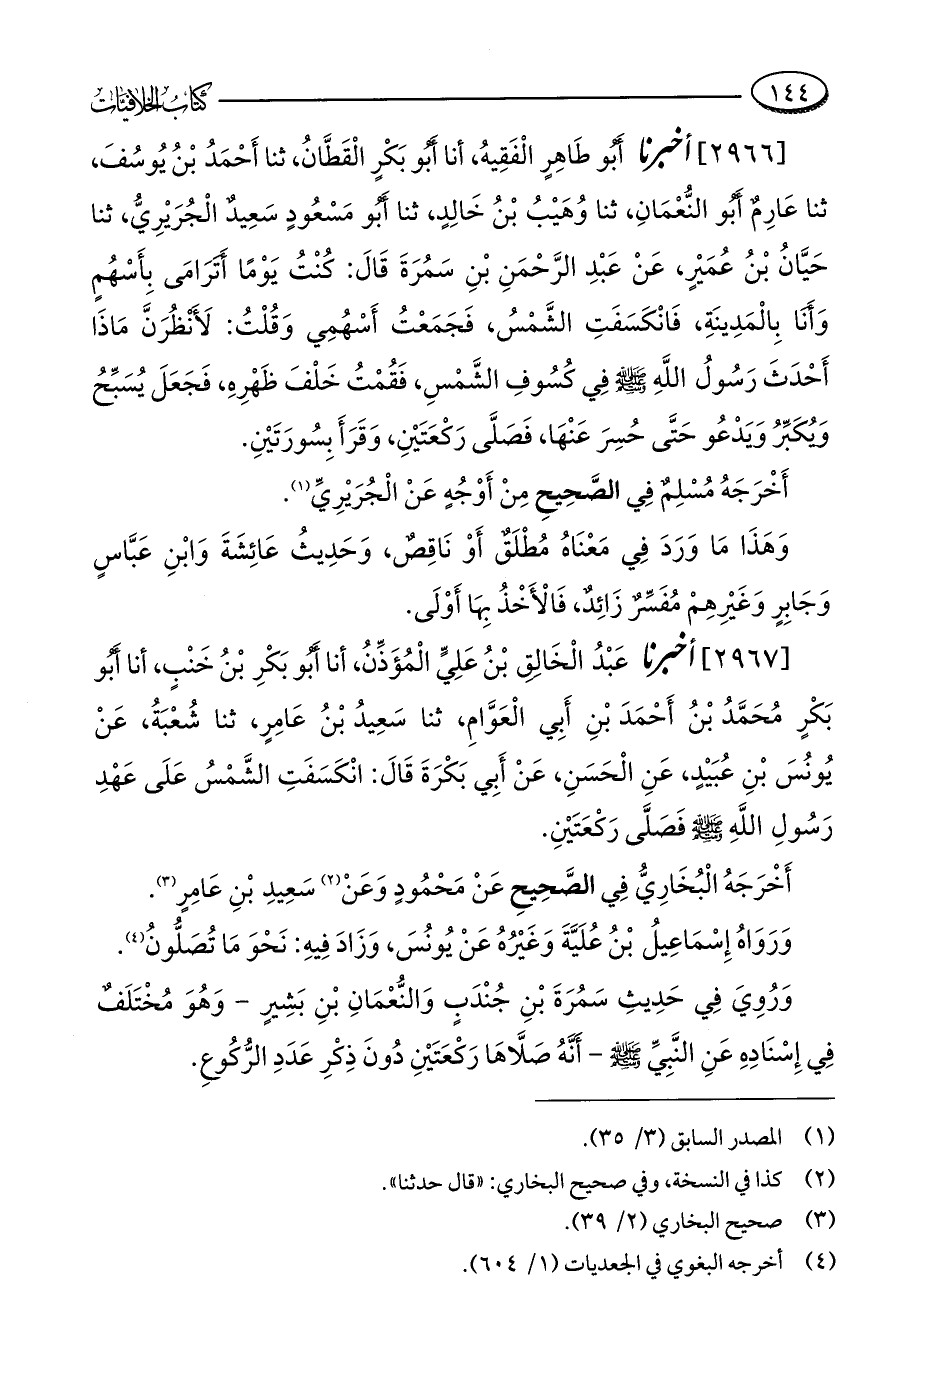 ١٤٤ كتاب الخلافيات
[٢٩٦٦] أخبرنا أَبُو طَاهِرٍ الْفَقِيهُ، أنا أَبُو بَكْرٍ الْقَطَّانُ، ثنا أَحْمَدُ بْنُ يُوسُفَ،
ثنا عَارِمٌ أَبُو النُّعْمَانِ، ثنا وُهَيْبُ بْنُ خَالِدٍ، ثنا أَبُو مَسْعُودٍ سَعِيدٌ الْجُرَيْرِيُّ، ثنا
حَيَّانُ بْنُ عُمَيْرٍ، عَنْ عَبْدِ الرَّحْمَنِ بْنِ سَمُرَةَ قَالَ: كُنْتُ يَوْمًا أَتَرَامَى بِأَسْهُمٍ
وَأَنَا بِالْمَدِينَةِ، فَانْكَسَفَتِ الشَّمْسُ، فَجَمَعْتُ أَسْهُمِي وَقُلْتُ: لَأَنْظُرَنَّ مَاذَا
أَحْدَثَ رَسُولُ اللَّهِ ﷺ فِي كُسُوفِ الشَّمْسِ، فَقُمْتُ خَلْفَ ظَهْرِهِ، فَجَعَلَ يُسَبِّحُ
وَيُكَبِّرُ وَيَدْعُو حَتَّى حُسِرَ عَنْهَا، فَصَلَّى رَكْعَتَيْنِ، وَقَرَأَ بِسُورَتَيْنِ.
أَخْرَجَهُ مُسْلِمٌ فِي الصَّحِيحِ مِنْ أَوْجُهٍ عَنْ الْجُرَيْرِيِّ(١).
وَهَذَا مَا وَرَدَ فِي مَعْنَاهُ مُطْلَقٌ أَوْ نَاقِصٌ، وَحَدِيثُ عَائِشَةَ وَابْنِ عَبَّاسٍ
وَجَابِرٍ وَغَيْرِهِمْ مُفَسِّرٌ زَائِدٌ، فَالْأَخْذُ بِهَا أَوْلَى.
[٢٩٦٧] أخبرنا عَبْدُ الْخَالِقِ بْنُ عَلِيٍّ الْمُؤَذِّنُ، أنا أَبُو بَكْرِ بْنُ خَنْبٍ، أنا أَبُو
بَكْرٍ مُحَمَّدُ بْنُ أَحْمَدَ بْنِ أَبِي الْعَوَّامِ، ثنا سَعِيدُ بْنُ عَامِرٍ، ثنا شُعْبَةُ، عَنْ
يُونُسَ بْنِ عُبَيْدٍ، عَنِ الْحَسَنِ، عَنْ أَبِي بَكْرَةَ قَالَ: انْكَسَفَتِ الشَّمْسُ عَلَى عَهْدِ
رَسُولِ اللَّهِ ﷺ فَصَلَّى رَكْعَتَيْنِ.
أَخْرَجَهُ الْبُخَارِيُّ فِي الصَّحِيحِ عَنْ مَحْمُودٍ وَعَنْ(٢) سَعِيدِ بْنِ عَامِرٍ(٣).
وَرَوَاهُ إِسْمَاعِيلُ بْنُ عُلَيَّةَ وَغَيْرُهُ عَنْ يُونُسَ، وَزَادَ فِيهِ: نَحْوَ مَا تُصَلُّونَ(٤).
وَرُوِيَ فِي حَدِيثِ سَمُرَةَ بْنِ جُنْدَبٍ وَالنُّعْمَانِ بْنِ بَشِيرٍ - وَهُوَ مُخْتَلَفٌ
فِي إِسْنَادِهِ عَنِ النَّبِيِّ ﷺ - أَنَّهُ صَلَّاهَا رَكْعَتَيْنِ دُونَ ذِكْرِ عَدَدِ الرُّكُوعِ.
(١) المصدر السابق (٣/ ٣٥).
(٢) كذا في النسخة، وفي صحيح البخاري: «قال حدثنا».
(٣) صحيح البخاري (٢/ ٣٩).
(٤) أخرجه البغوي في الجعديات (١/ ٦٠٤).